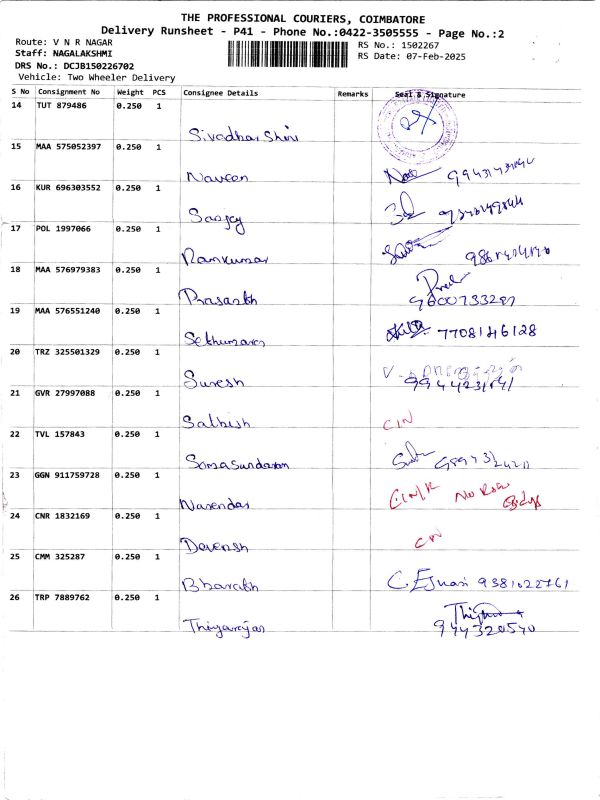 THE PROFESSIONAL COURIERS, COIMBATORE
Delivery Runsheet - P41 - Phone No.:0422-3505555 - Page No.:2
Route: V N R NAGAR
RS No.: 1502267
Staff: NAGALAKSHMI
RS Date: 07-Feb-2025
DRS No.: DCJB150226702
Vehicle: Two Wheeler Delivery
S No Consignment No Weight PCS Consignee Details Remarks Seal & Signature
14 TUT 879486 0.250 1
Sivadharshini
15 MAA 575052397 0.250 1
Naveen
16 KUR 696303552 0.250 1
Sanjay
17 POL 1997066 0.250 1
Ramkumar
18 MAA 576979383 0.250 1
Prasanth 9600733287
19 MAA 576551240 0.250 1
Sekhumaran 7708146128
20 TRZ 325501329 0.250 1
Suresh
21 GVR 27997088 0.250 1
Sathish C/N
22 TVL 157843 0.250 1
Somasundaram
23 GGN 911759728 0.250 1
Narendar
24 CNR 1832169 0.250 1
Devensh CN
25 CMM 325287 0.250 1
Bharath 9381022761
26 TRP 7889762 0.250 1
Thiyarajan 944320540